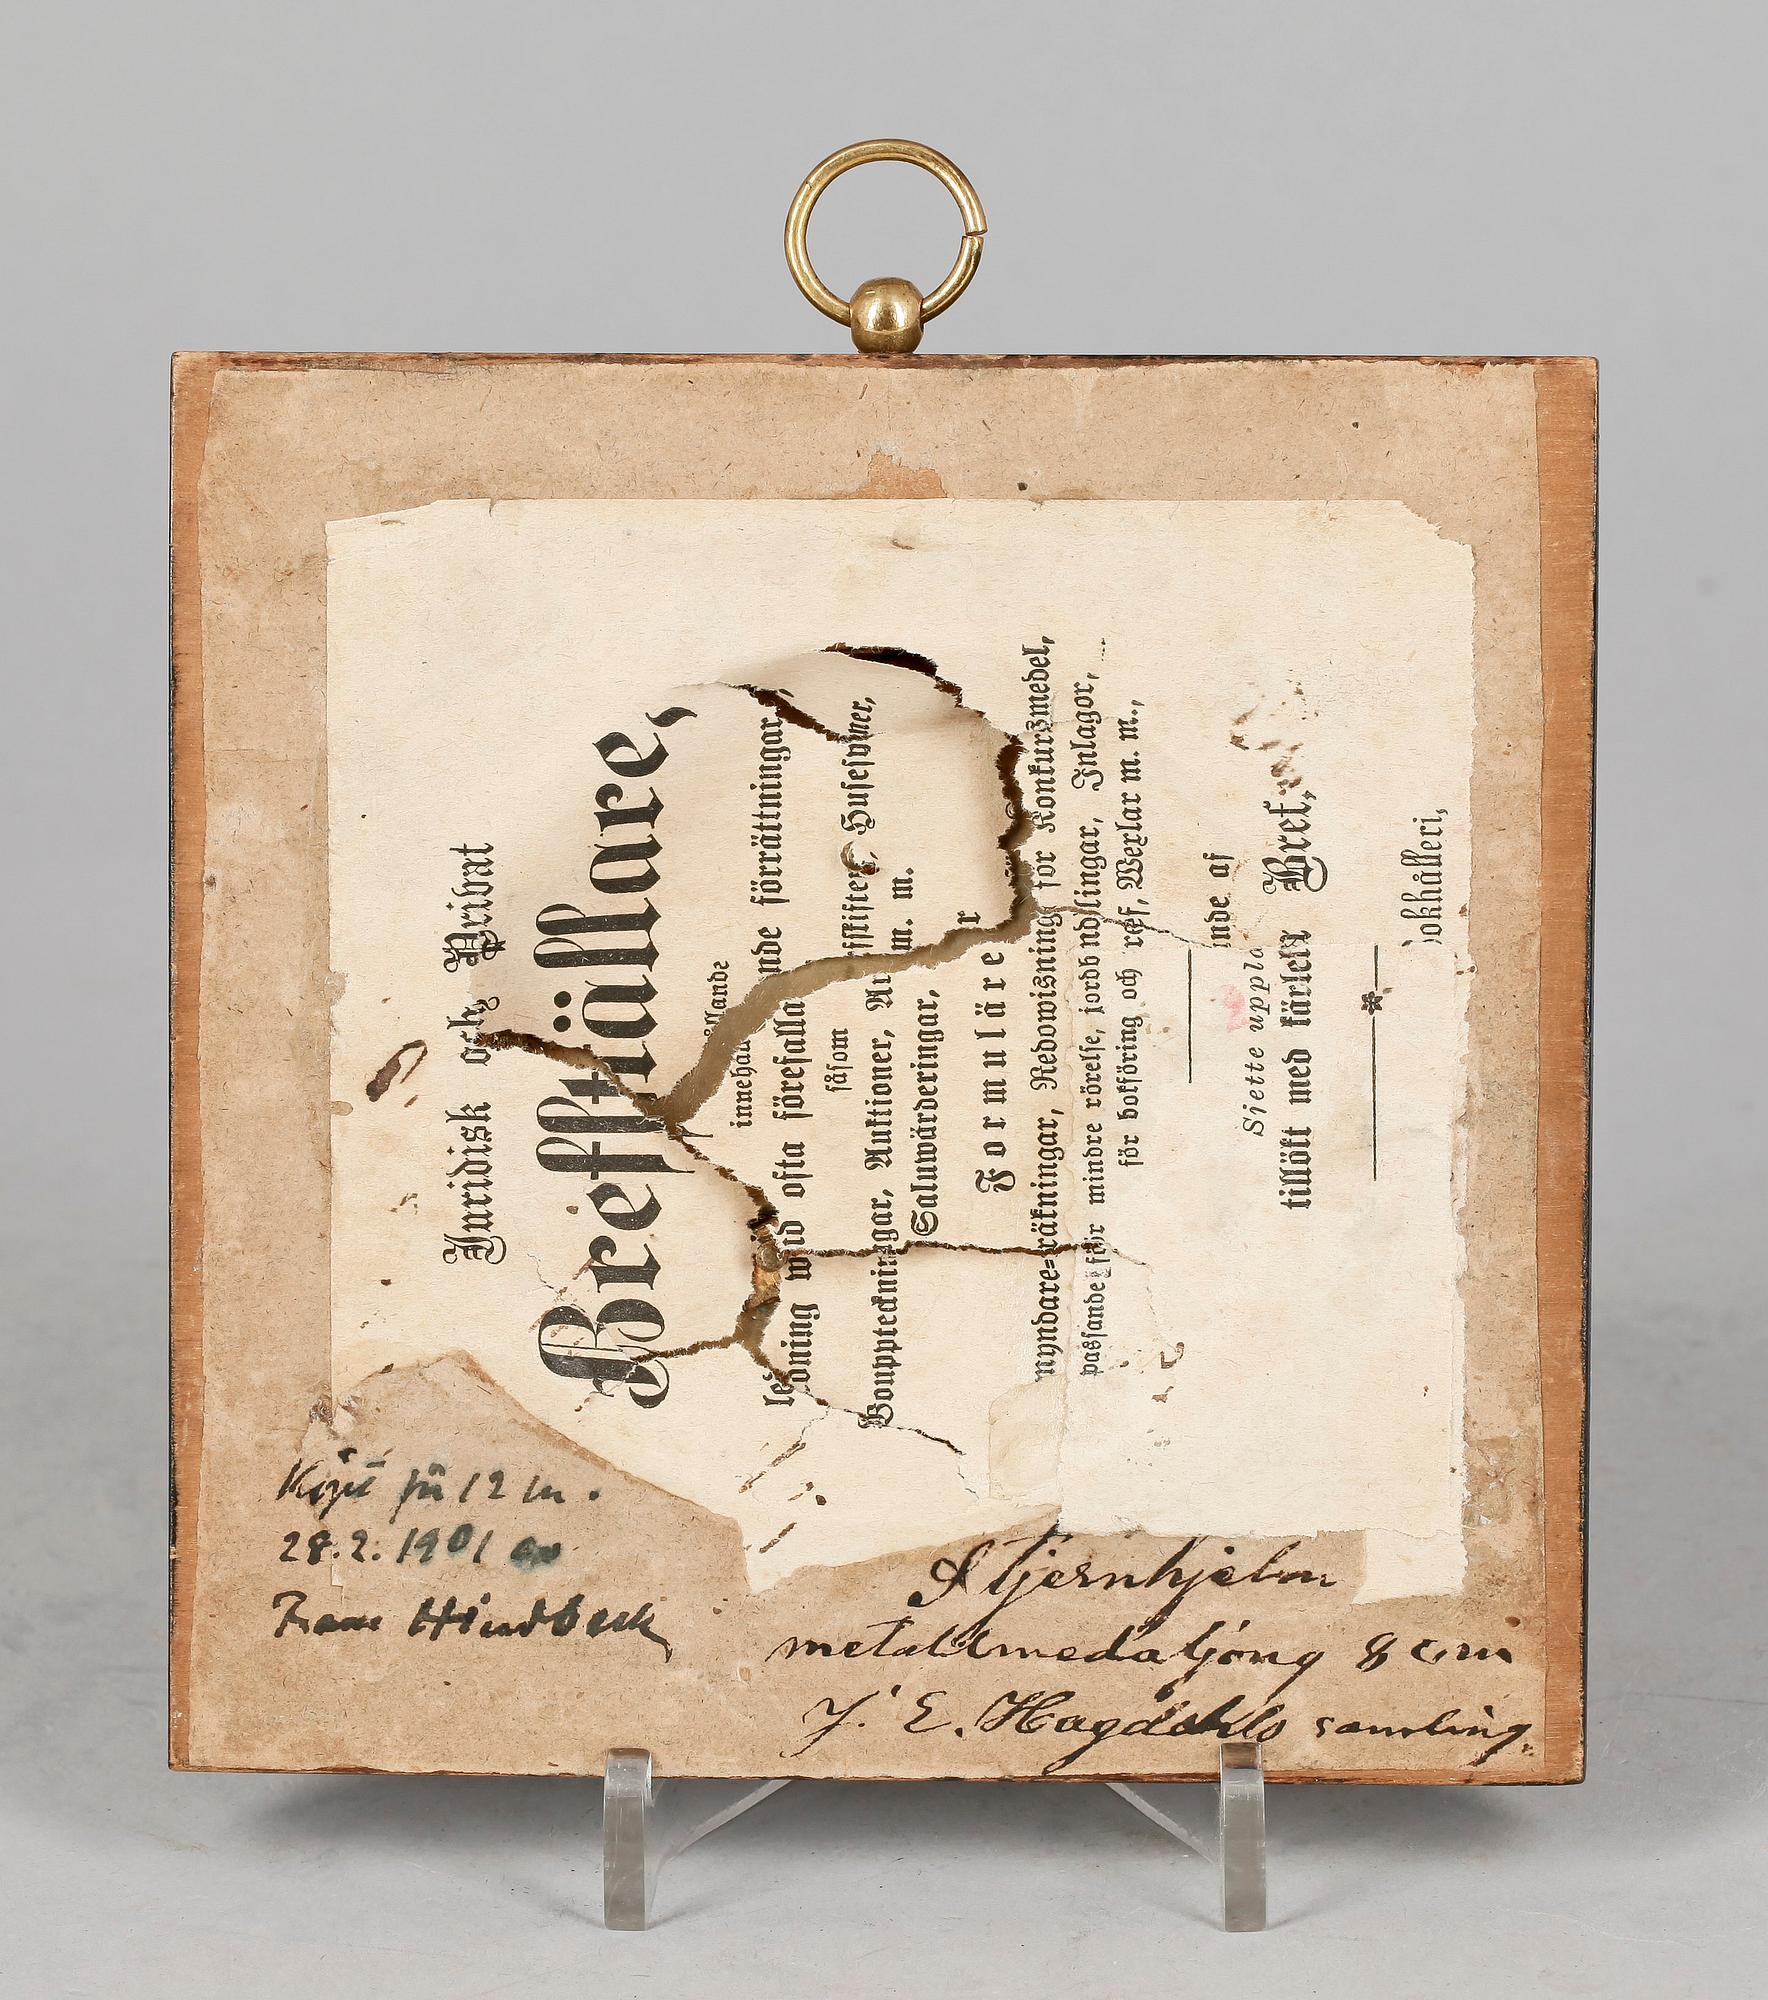 Juridisk och Privat
Brefställare,
innehållande
ledning wid ofta förefallande förrättningar,
såsom
Bouppteckningar, Auktioner, Arfskiften, Husesyner,
Saluwärderingar, m. m.
Formulär
myndare-räkningar, Redowisning för Konkursmedel,
passande för mindre rörelse, jordb ndlingar, Inlagor,
för bokföring och ref, Wexlar m. m.,
nde af
Sjette uppla
tillökt med kärleks Bref,
okhålleri,
Köpt för 12 kr.
28.2.1901 av
Frans Hindbeck
Stjernhjelm
metallmedaljong 8 cm
J. E. Hagdahls samling.